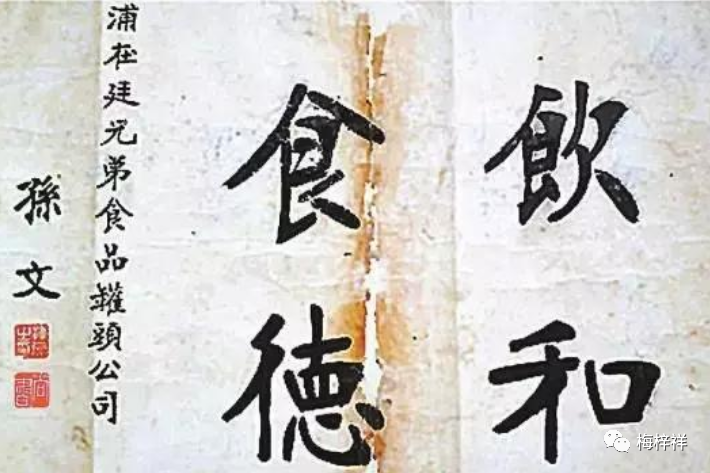 飲和
食德
浦在廷兄弟食品罐頭公司
孫文
梅梓祥